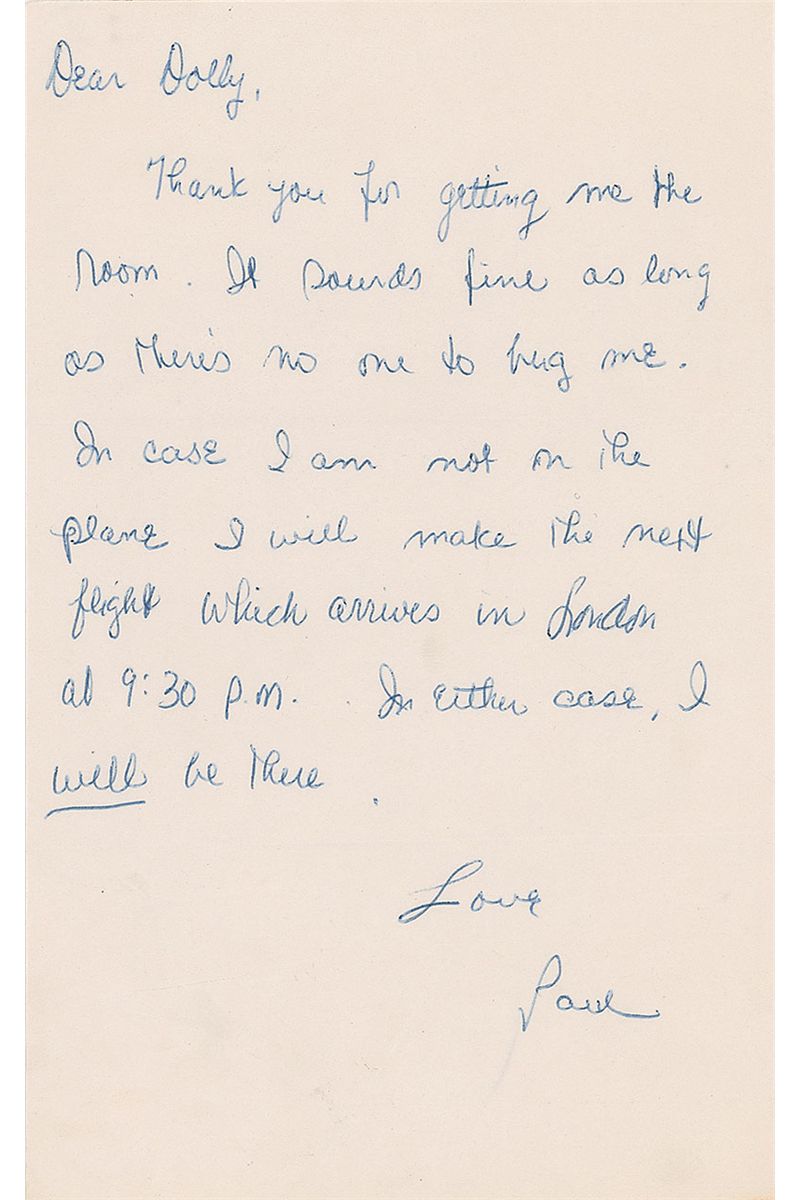 Dear Dolly,
Thank you for getting me the
room. It sounds fine as long
as there's no one to bug me.
In case I am not on the
plane I will make the next
flight which arrives in London
at 9:30 p.m. In either case, I
will be there.
Love
Paul